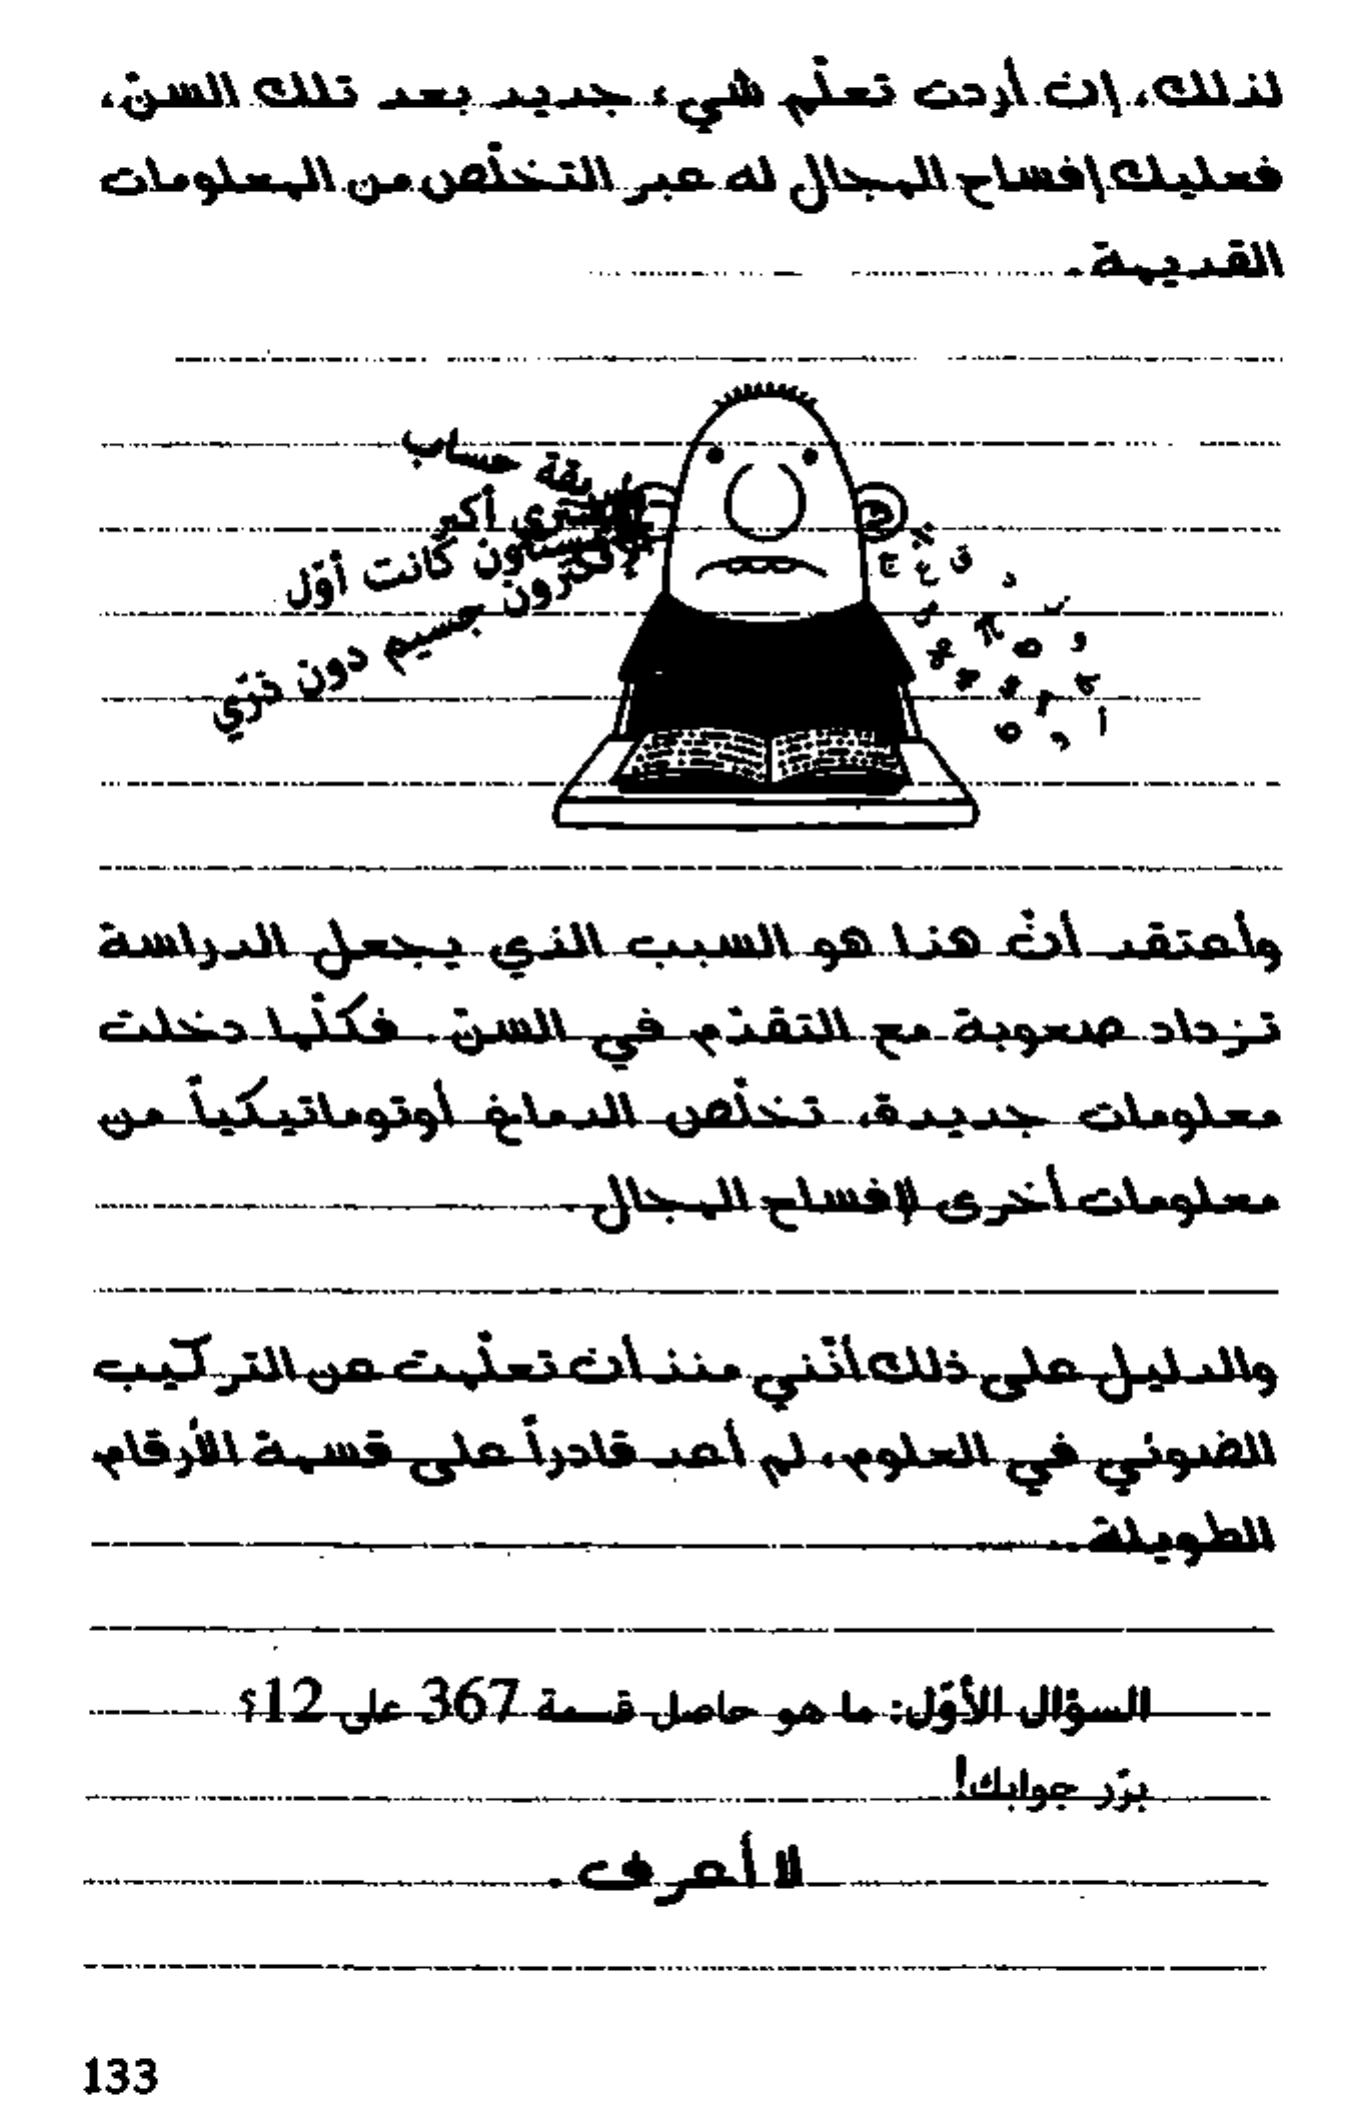 لذلك، إن أردت تعلّم شيء جديد بعد تلك السنّ،
فعليك إفساح المجال له عبر التخلّص من المعلومات
القديمة.
حساب
المشتري أكبر
كانت أوّل
جسيم دون ذرّي
وأعتقد أنّ هذا هو السبب الذي يجعل الدراسة
تزداد صعوبة مع التقدّم في السنّ. فكلّما دخلت
معلومات جديدة، تخلّص الدماغ أوتوماتيكياً من
معلومات أخرى لإفساح المجال.
والدليل على ذلك أنّني منذ أن تعلّمت عن التركيب
الضوئي في العلوم، لم أعد قادراً على قسمة الأرقام
الطويلة.
السؤال الأوّل: ما هو حاصل قسمة 367 على 12؟
برّر جوابك!
لا أعرف.
133